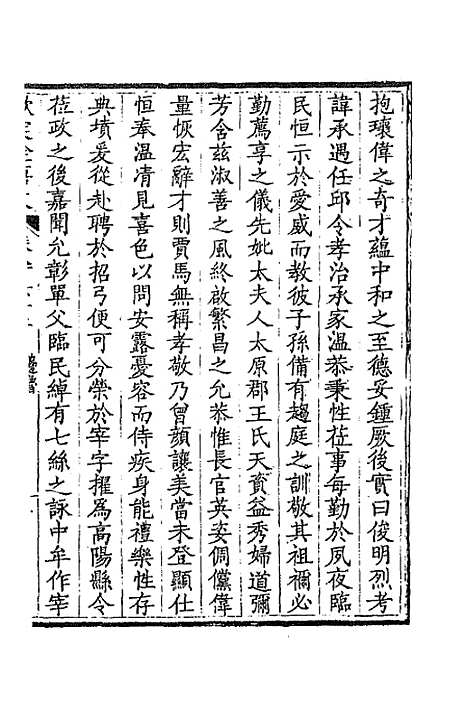 抱瓌偉之奇才蘊中和之至德妥鍾厥後實曰俊明烈考
諱承遇任邱令孝治承家溫恭秉性莅事每勤於夙夜臨
民恒示於愛威而教彼子孫備有趨庭之訓敬其祖禰必
勤薦享之儀先妣太夫人太原郡王氏天資益秀婦道彌
芳含茲淑善之風終啟繁昌之允恭惟長官英姿倜儻偉
量恢宏辭才則賈馬無稱孝敬乃曾顏讓美當未登顯仕
恒奉溫凊見喜色以問安露憂容而侍疾身能禮樂性存
典墳爰從赴聘於招弓便可分榮於宰字擢為高陽縣令
莅政之後嘉聞允彰單父臨民綽有七絲之詠中牟作宰
欽定全唐文